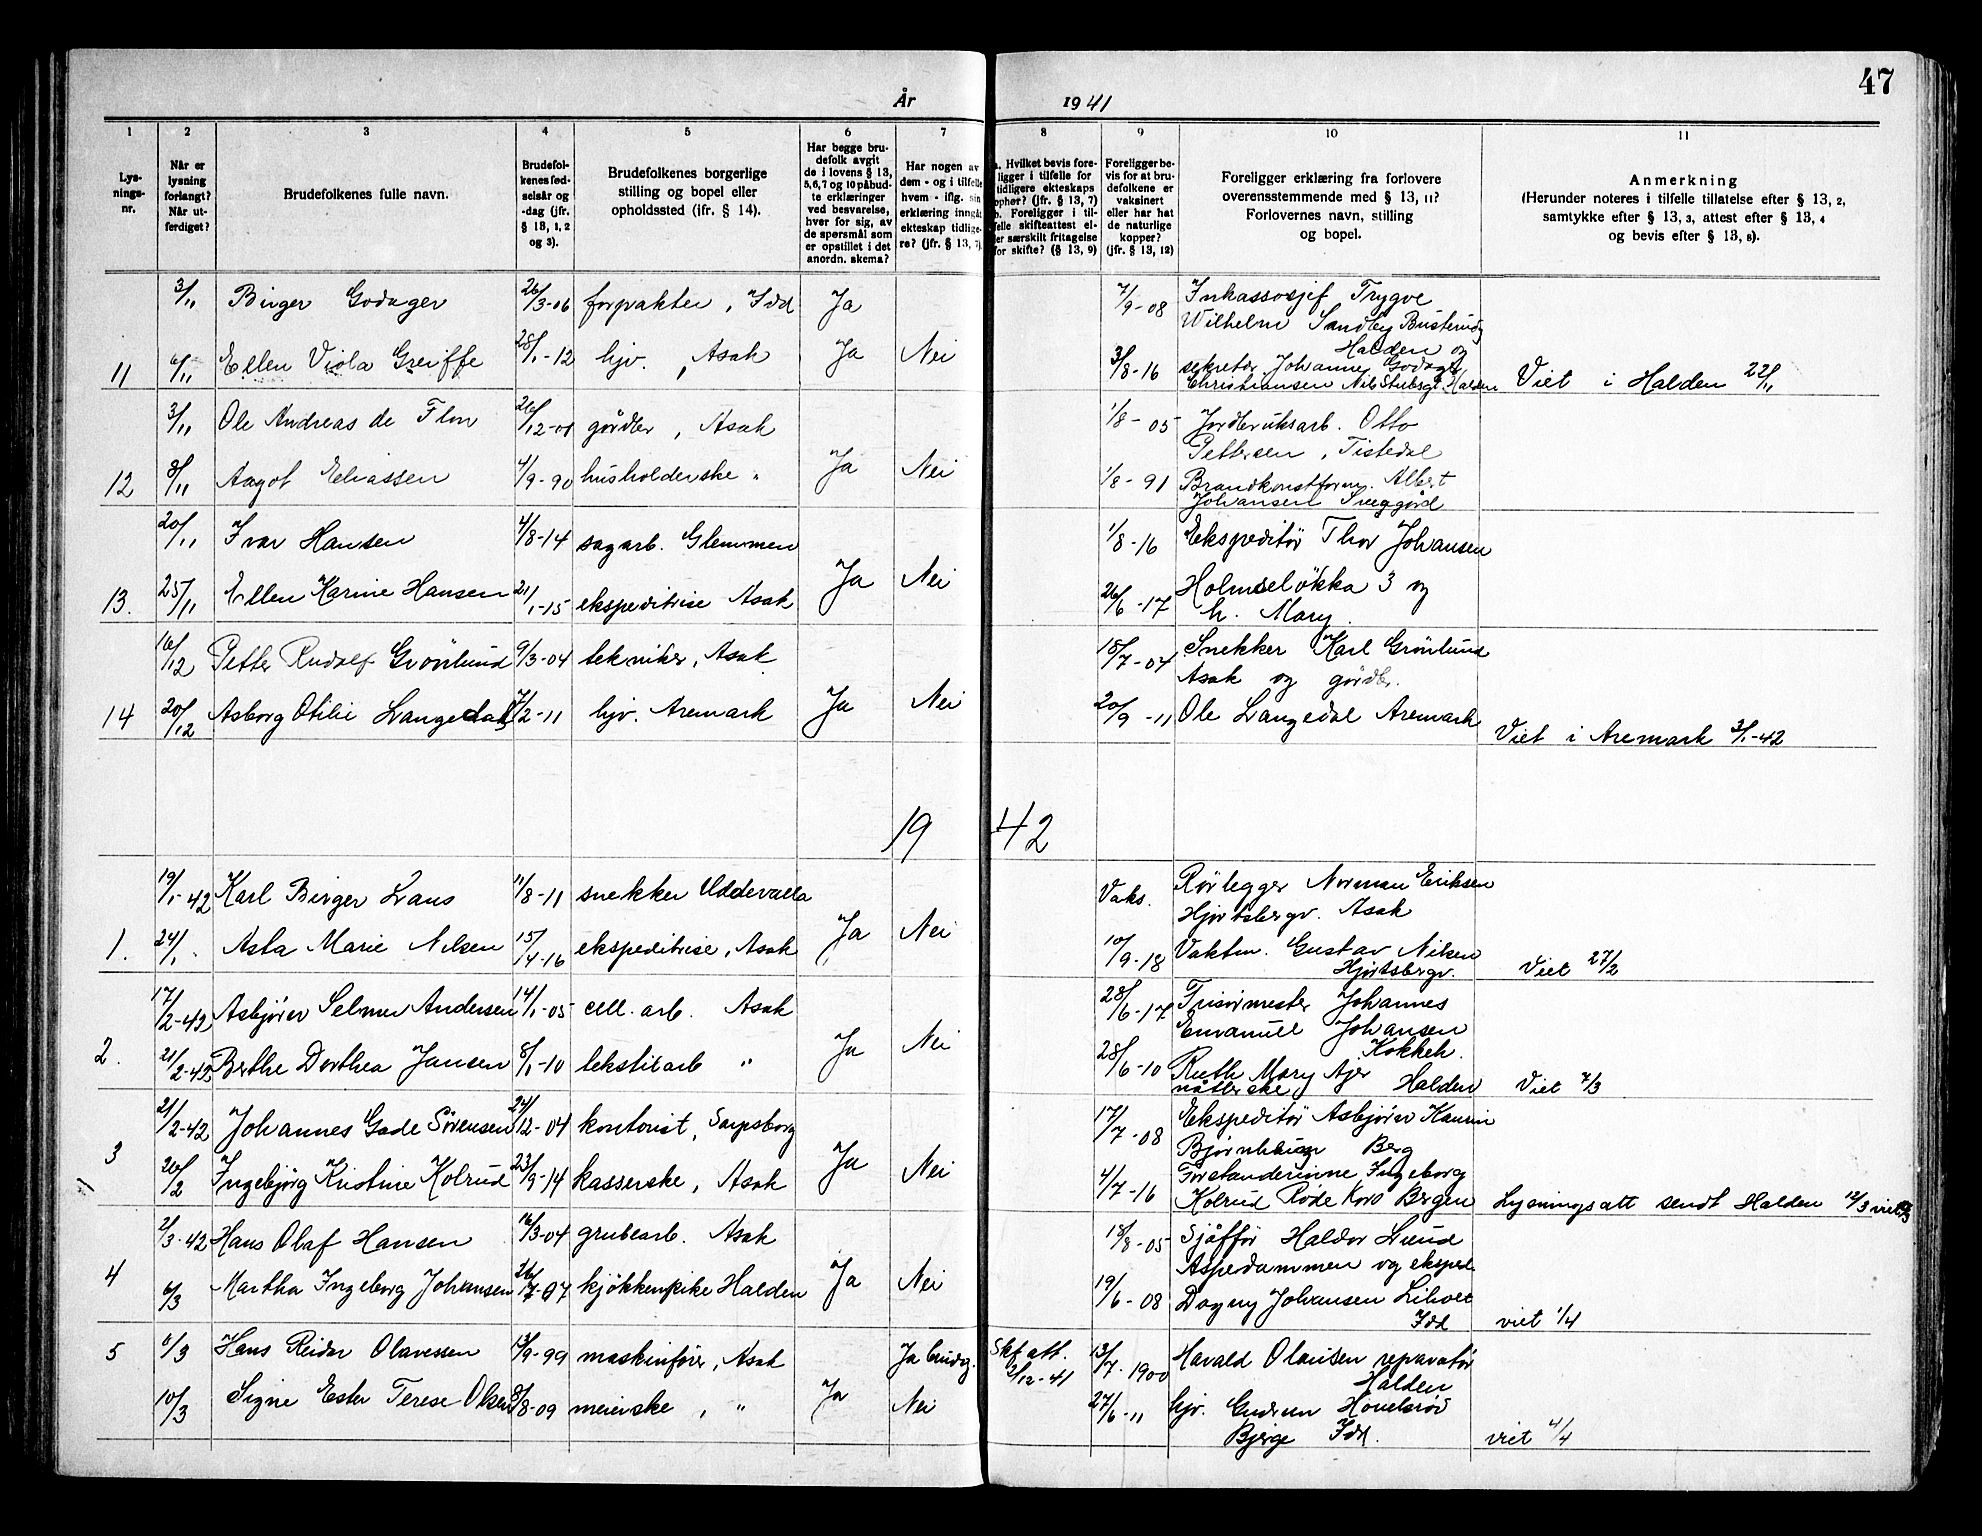 47
År 1941
1 2 3 4 5 6 7 8 9 10 11
Lys-
nings-
nr.
Når er
lysning
forlangt?
Når ut-
ferdiget?
Brudefolkenes fulle navn.
Brudefol-
kenes fød-
selsår og
-dag (jfr.
§ 13, 1, 2
og 3).
Brudefolkenes borgerlige
stilling og bopel eller
opholdssted (ifr. § 14).
Har begge bru-
defolk avgit
de i lovens § 13,
5, 6, 7 og 10 påbud-
te erklæringer
ved besvarelse,
hver for sig, av
de spørsmål som
er opstillet i det
anordn. skema?
Har nogen av
dem - og i tilfelle
hvem - iflg. sin
erklæring inngåt
ekteskap tidlige-
re? (jfr. § 13, 7).
a. Hvilket bevis fore-
ligger i tilfelle for
tidligere ekteskaps
opphør? (jfr. § 13, 7)
b. Foreligger i til-
felle skifteattest el-
ler særskilt fritagelse
for skifte? (§ 13, 9)
Foreligger be-
vis for at bru-
defolkene er
vaksinert
eller har hat
de naturlige
kopper?
(jfr. § 13, 12)
Foreligger erklæring fra forlovere
overensstemmende med § 13, 11?
Forlovernes navn, stilling
og bopel.
Anmerkning
(Herunder noteres i tilfelle tillatelse efter § 13, 2,
samtykke efter § 13, 3, attest efter § 13, 4
og bevis efter § 13, 8).
3/11 Birger Godager 26/3-06 forpakter, Idd Ja 7/9-08 Inkassosjef Trygve
Wilhelm Sandby Busterud
Halden og
11 6/11 Ellen Viola Greiffe 28/1-12 hjv., Asak Ja Nei 3/8-16 sekretær Johannes Godager
Christiansen Nils Stubsgt. Halden Viet i Halden 22/11
3/11 Ole Andreas de Flon 26/12-01 gårdbr, Asak 1/8-05 Jordbruksarb. Otto
Pettersen, Tistedal
12 8/11 Aagot Eliassen 4/9-90 husholderske " Ja Nei 1/8-91 Brandkonstform. Albert
Johansen
20/11 Ivar Hansen 4/8-14 sagarb. Glemmen 1/8-16 Ekspeditør Thor Johansen
13. 25/11 Ellen Karine Hansen 21/1-15 ekspeditrise Asak Ja Nei 26/6-17 Holmseløkka 3 og
h. Mary.
16/12 Petter Rudolf Grönlund 9/3-04 tekniker, Asak 18/7-04 Snekker Karl Grönlund
Asak og gårdbr.
14 20/12 Asborg Otilie Langedal 7/2-11 hjv. Aremark Ja Nei 20/9-11 Ole Langedal Aremark
Viet i Aremark 3/1-42
1942
19/1-42 Karl Birger Lans 11/8-11 snekker Uddevalla Vaks. Rörlegger Norman Eriksen
Hjortsbergv. Asak
1. 24/1. Asta Marie Nilsen 15/4-16 ekspeditrise, Asak Ja Nei 10/9-18 Vaktm. Gustav Nilsen
Hjortsbergv. Viet 27/2
17/2-42 Asbjörn Selmer Andersen 14/1-05 cell. arb. Asak 28/6-17 Frisörmester Johannes
Emanuel Johansen
Kokkeh.
2. 21/2-42 Berthe Dorthea Jansen 8/1-10 tekstilarb " Ja Nei 28/6-10 Ruth Mary Ajer
nåtlerske, Halden Viet 7/3
21/2-42 Johannes Gade Sörensen 24/12-04 kontorist, Sarpsborg 17/7-08 Ekspeditör Asbjörn
Berg
3 26/2 Ingebjörg Kristine Kolrud 23/9-14 kasserske, Asak Ja Nei 4/7-16 Forstanderinne Ingeborg
Kolrud Röde Kors Bergen Lysningsatt sendt Halden 12/3 viet
2/3-42 Hans Olaf Hansen 16/3-04 grubearb. Asak 18/8-05 Sjåffør Haldor Lund
Aspedammen og eksped.
4 6/3 Martha Ingeborg Johansen 26/7-97 kjökkenpike Halden Ja Nei 19/6-08 Dagny Johansen Liholt
Idd viet 1/4
5 6/3 Hans Reidar Olavessen 13/9-99 maskinfører, Asak Ja brudg. Skf att. 2/12-41 13/7-1900 Havald Olausen reparatör
Halden
10/3 Signe Ester Terese Olsen 8/8-09 meierske, " Ja Nei 27/6-11 hjv. Gudrun
Bjerge Idd. viet 4/4